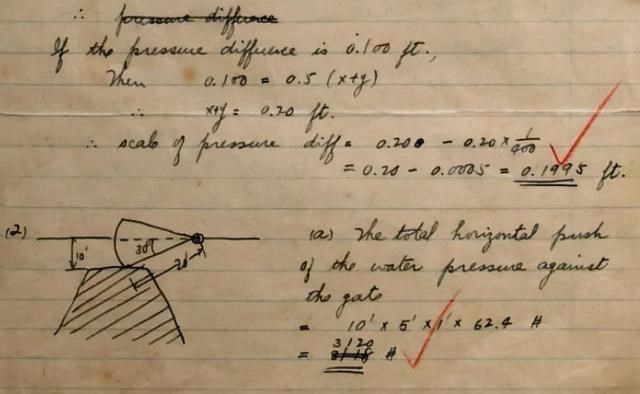 ∴ pressure difference
If the pressure difference is 0.100 ft.,
Then 0.100 = 0.5 (x+y)
∴ x+y = 0.20 ft.
∴ scale of pressure diff = 0.200 - 0.20 × 1/400
= 0.20 - 0.0005 = 0.1995 ft.
(2)
10'
30°
20'
(a) The total horizontal push
of the water pressure against
the gate
= 10' × 5' × 1' × 62.4 #
= 3120 #